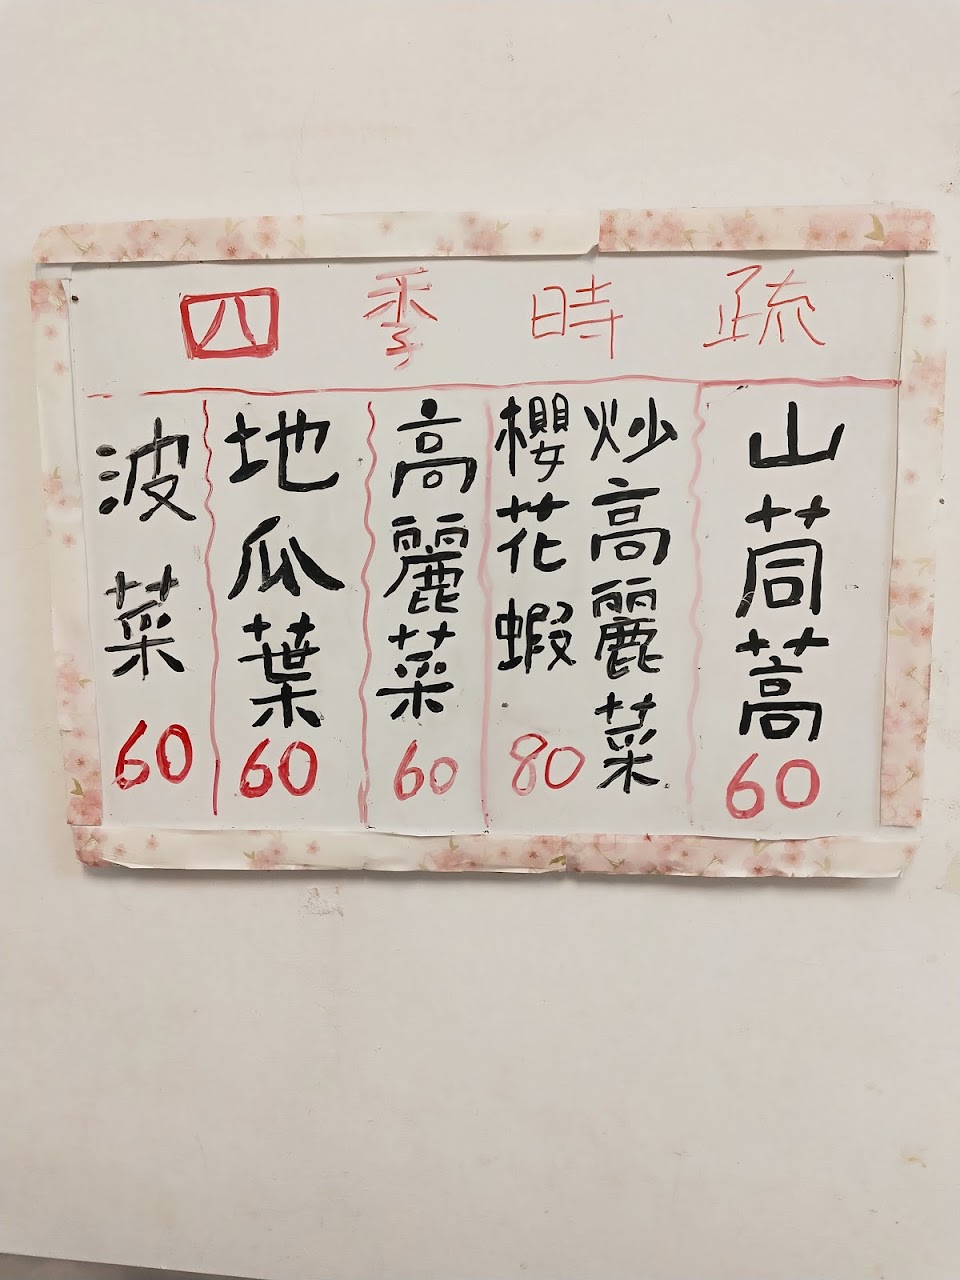 四季時疏
波菜
60
地瓜葉
60
高麗菜
60
櫻花蝦
炒高麗菜
80
山茼蒿
60